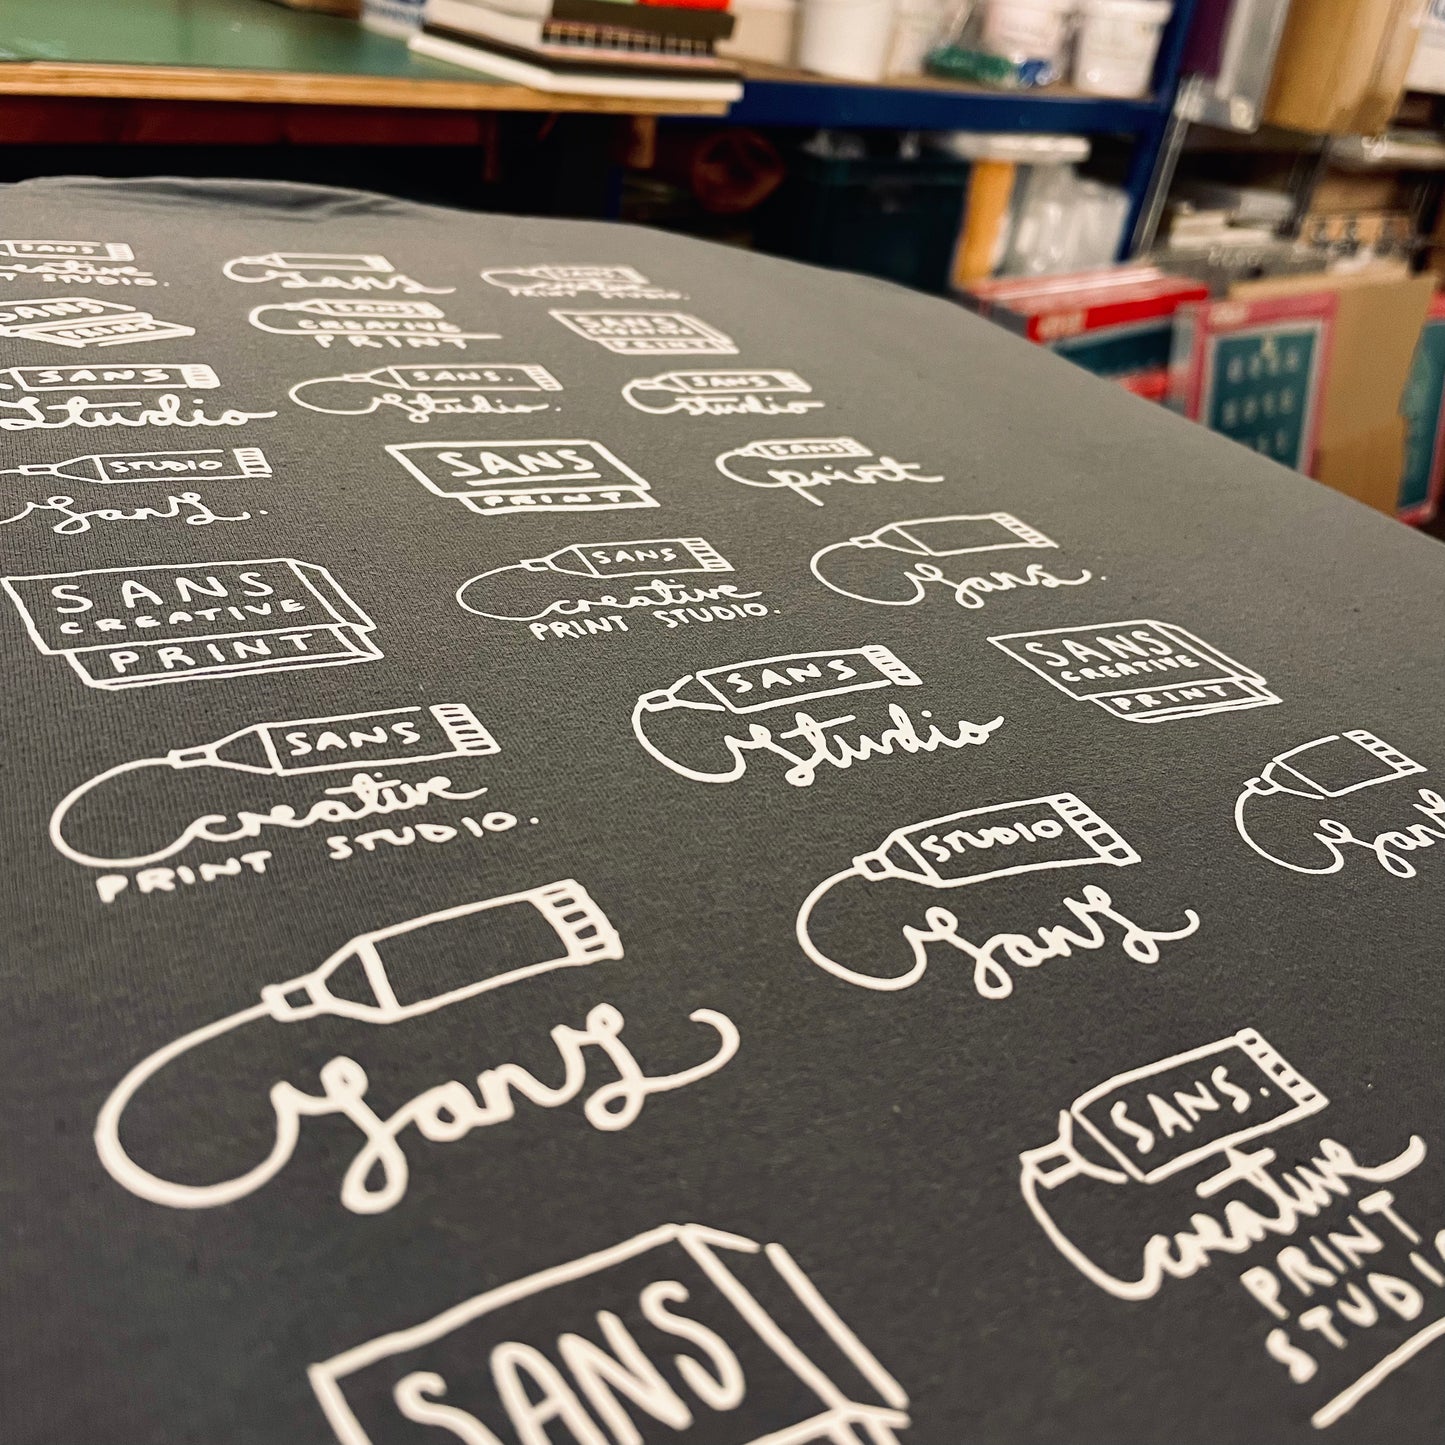 SANS
creative
T STUDIO.
Sans
SANS
creative
PRINT STUDIO.
SANS
PRINT
SANS
CREATIVE
PRINT
SANS
CREATIVE
PRINT
SANS
Studio
SANS.
Studio.
SANS
studio
STUDIO
Sans.
SANS
PRINT
SANS
print
SANS
CREATIVE
PRINT
SANS
creative
PRINT STUDIO.
Sans.
SANS
creative
PRINT STUDIO.
SANS
Studio
SANS
CREATIVE
PRINT
Sans
STUDIO
Sans
Sans
SANS.
creative
PRINT
STUDIO
SANS